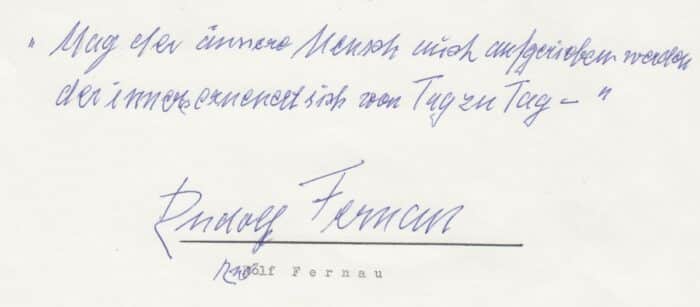 " Mag der äussere Mensch auch aufgerieben werden
der innere erneuert sich von Tag zu Tag – "
Rudolf Fernau
Rudolf Fernau